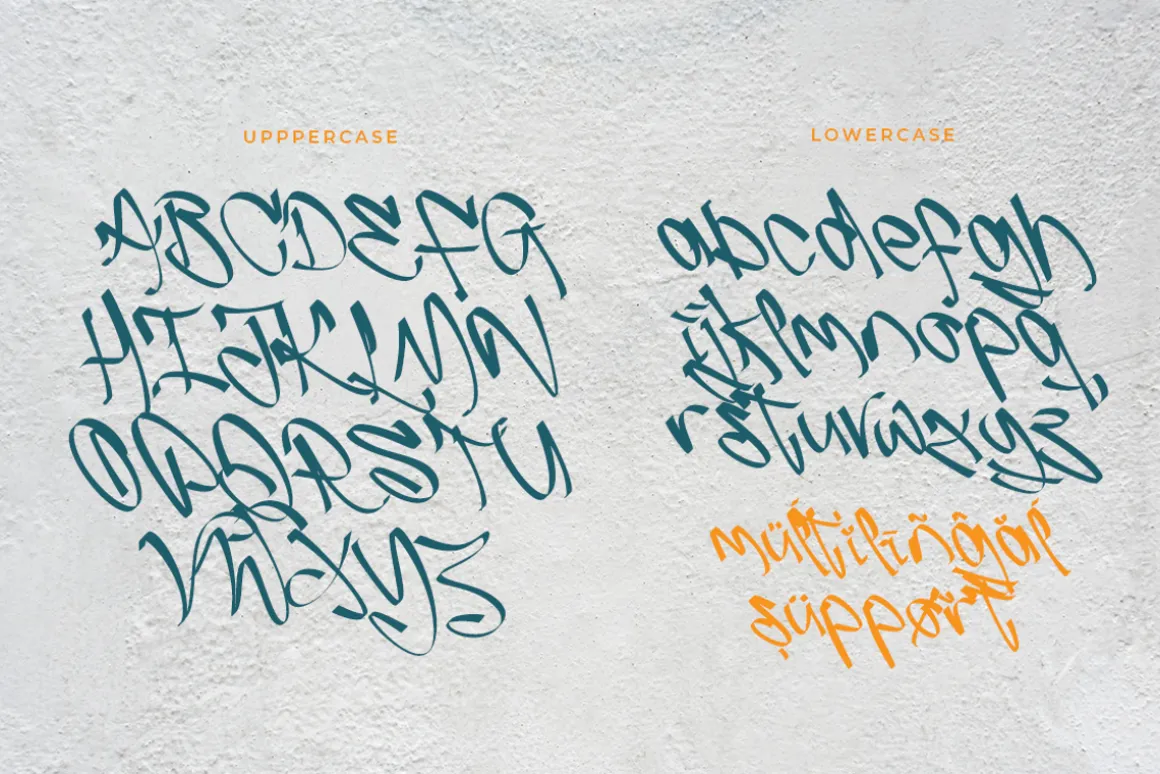 UPPPERCASE
ABCDEFG
HIJKLMN
OPQRSTU
VWXYZ
LOWERCASE
abcdefgh
ijklmnopq
rstuvwxyz
müĺtĭlīñğâĺ
şüppør̃t